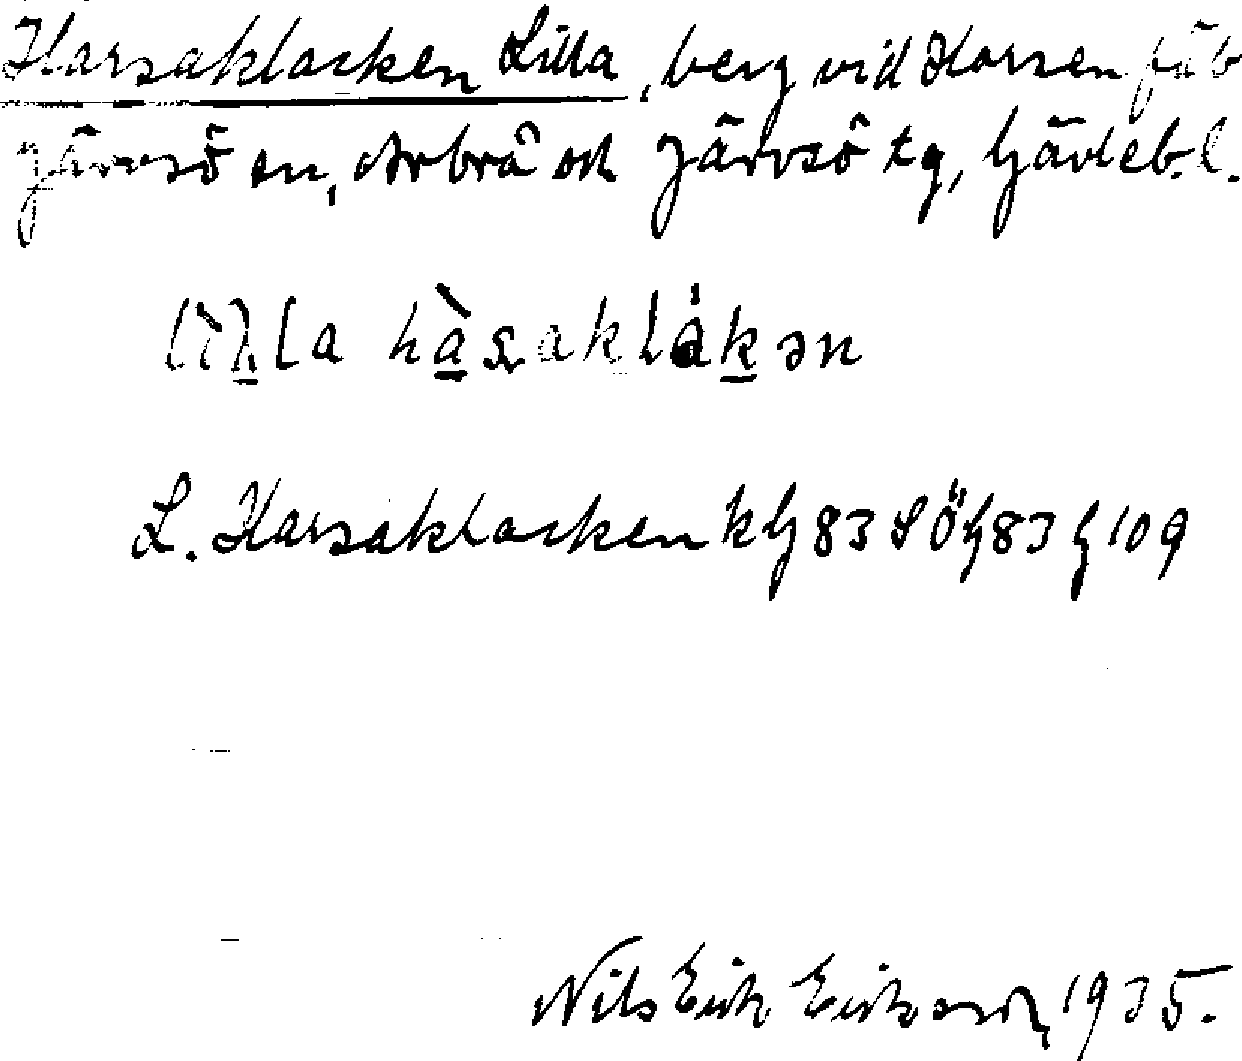 Harsaklacken Lilla, berg vid Harsen fäb
Järvsö sn, Arbrå och Järvsö tg, Gävleb. l.
L. Harsaklacken k G 83 S Ö G 83 G 109
Nils Erik Eriksson, 1935.